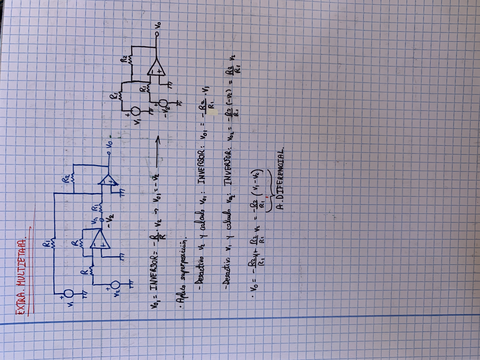 EXTRA: MULTIETAPA.
R1
R2
R
R
R1
V1
V2
-V2
Vo
R1
R2
R1
V1
-V2
Vo
Vo1 = INVERSOR = -R/R · V2 ⇒ Vo1 = -V2
· Aplico superposición.
- Desactivo V2 y calculo Vo1: INVERSOR: Vo1 = -R2/R1 · V1
- Desactivo V1 y calculo Vo2: INVERSOR: Vo2 = -R2/R1 (-V2) = R2/R1 V2
· Vo = -R2/R1 V1 + R2/R1 V2 = -R2/R1 (V1 - V2)
A. DIFERENCIAL